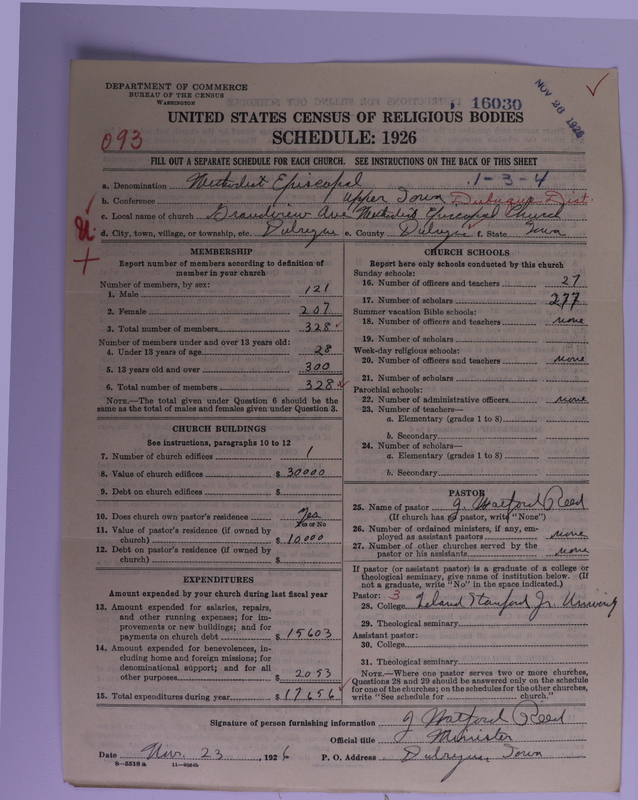 DEPARTMENT OF COMMERCE
BUREAU OF THE CENSUS
WASHINGTON
16030
NOV 26 1926
UNITED STATES CENSUS OF RELIGIOUS BODIES
093
SCHEDULE: 1926
FILL OUT A SEPARATE SCHEDULE FOR EACH CHURCH. SEE INSTRUCTIONS ON THE BACK OF THIS SHEET
a. Denomination Methodist Episcopal 1-3-4
b. Conference Upper Iowa Dubuque Dist.
c. Local name of church Grandview Ave Methodist Episcopal Church
d. City, town, village, or township, etc. Dubuque e. County Dubuque f. State Iowa
MEMBERSHIP
Report number of members according to definition of
member in your church
Number of members, by sex:
1. Male 121
2. Female 207
3. Total number of members 328
Number of members under and over 13 years old:
4. Under 13 years of age 28
5. 13 years old and over 300
6. Total number of members 328
NOTE.—The total given under Question 6 should be the
same as the total of males and females given under Question 3.
CHURCH BUILDINGS
See instructions, paragraphs 10 to 12
7. Number of church edifices 1
8. Value of church edifices $ 30000
9. Debt on church edifices $
10. Does church own pastor's residence Yes
Yes or No
11. Value of pastor's residence (if owned by
church) $ 10,000
12. Debt on pastor's residence (if owned by
church) $
EXPENDITURES
Amount expended by your church during last fiscal year
13. Amount expended for salaries, repairs,
and other running expenses; for im-
provements or new buildings; and for
payments on church debt $ 15603
14. Amount expended for benevolences, in-
cluding home and foreign missions; for
denominational support; and for all
other purposes $ 2053
15. Total expenditures during year $ 17656
CHURCH SCHOOLS
Report here only schools conducted by this church
Sunday schools:
16. Number of officers and teachers 27
17. Number of scholars 277
Summer vacation Bible schools:
18. Number of officers and teachers none
19. Number of scholars
Week-day religious schools:
20. Number of officers and teachers none
21. Number of scholars
Parochial schools:
22. Number of administrative officers none
23. Number of teachers—
a. Elementary (grades 1 to 8)
b. Secondary
24. Number of scholars—
a. Elementary (grades 1 to 8)
b. Secondary
PASTOR
25. Name of pastor J. Watford Reed
(If church has no pastor, write "None")
26. Number of ordained ministers, if any, em-
ployed as assistant pastors none
27. Number of other churches served by the
pastor or his assistants none
If pastor (or assistant pastor) is a graduate of a college or
theological seminary, give name of institution below. (If
not a graduate, write "No" in the space indicated.)
Pastor: 3
28. College Leland Stanford Jr. University
29. Theological seminary
Assistant pastor:
30. College
31. Theological seminary
NOTE.—Where one pastor serves two or more churches,
Questions 28 and 29 should be answered only on the schedule
for one of the churches; on the schedules for the other churches,
write "See schedule for church."
Signature of person furnishing information J Watford Reed
Official title Minister
Date Nov. 23, 1926 P. O. Address Dubuque, Iowa
8—5518a 11—9264b